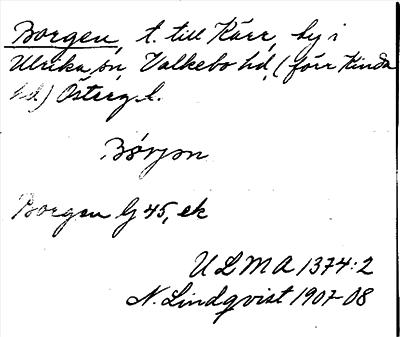 Borgen, t. till Kärr, by i
Ulrika sn, Valkebo hd, (förr Kinda
hd) Österg. l.
Børjon
Borgen G 45, ek
ULMA 1374:2
N. Lindqvist 1907-08